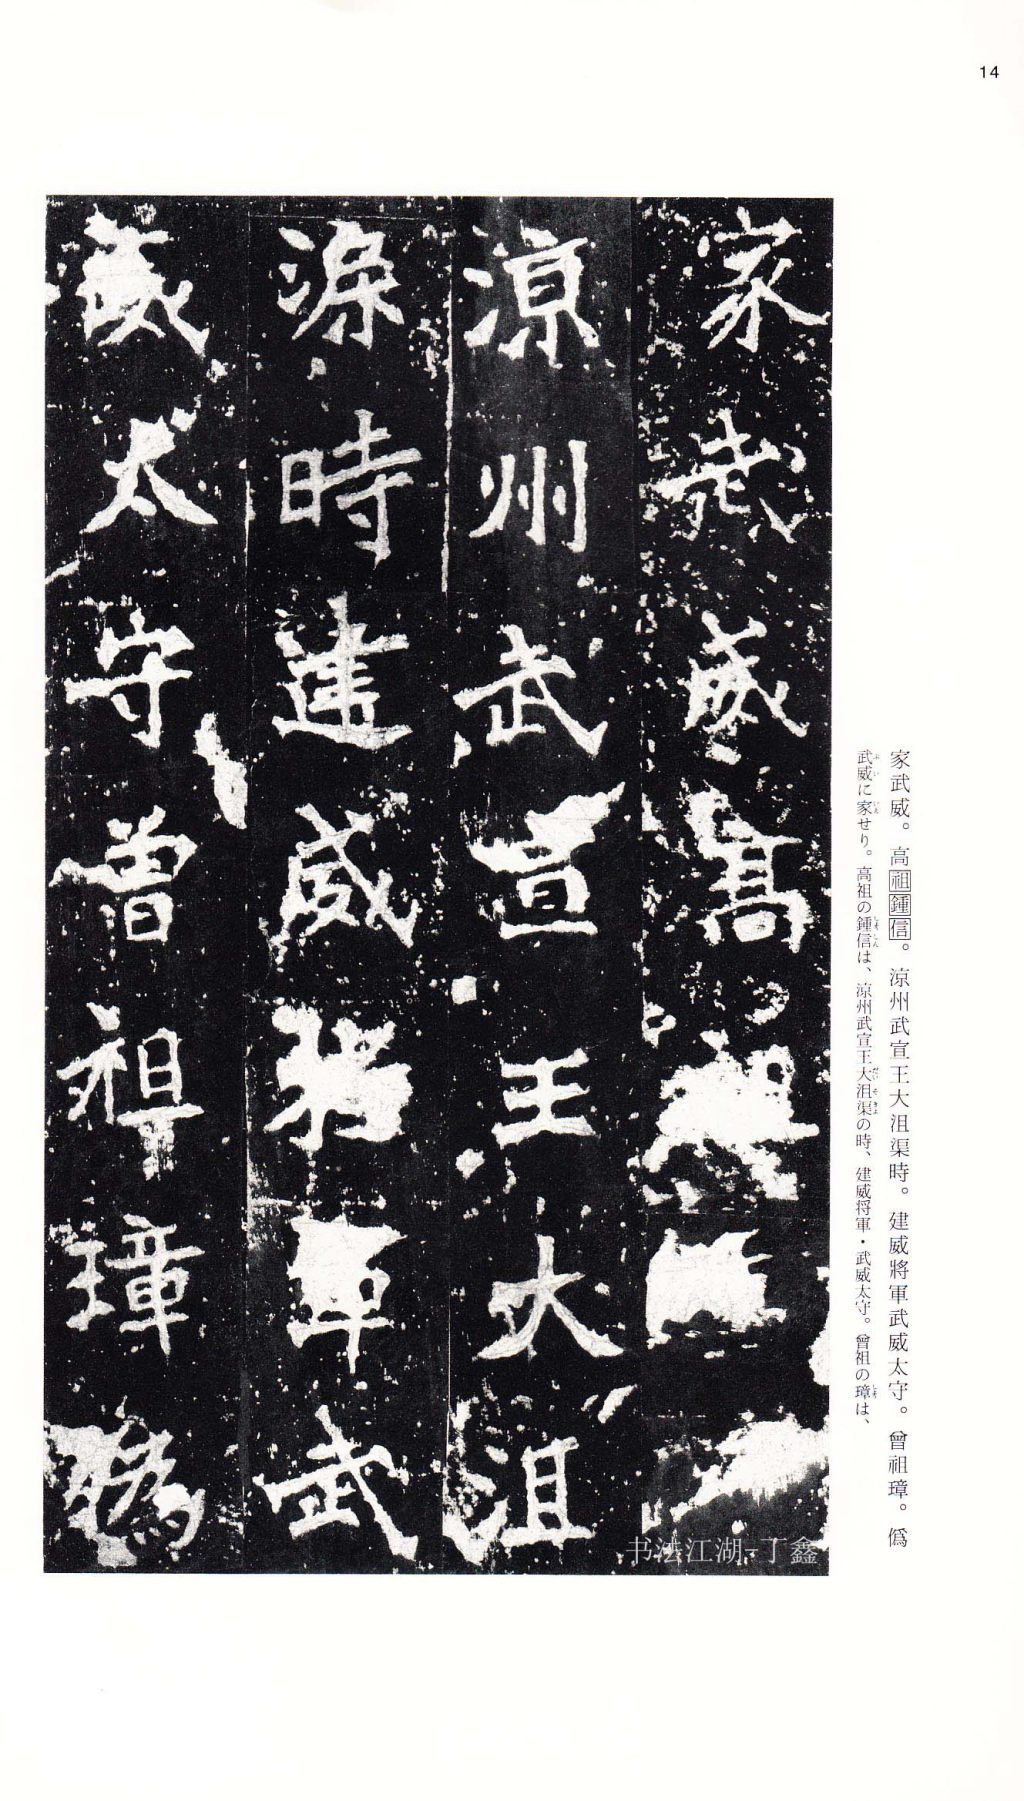 14
家武威高祖
涼州武宣王大沮
渠時建威將軍武
威太守曾祖璋偽
家武威。高祖鍾信。涼州武宣王大沮渠時。建威將軍武威太守。曾祖璋。僞
武威に家せり。高祖の鍾信は、涼州武宣王大沮渠の時、建威将軍・武威太守。曾祖の璋は、
书法江湖-丁鑫